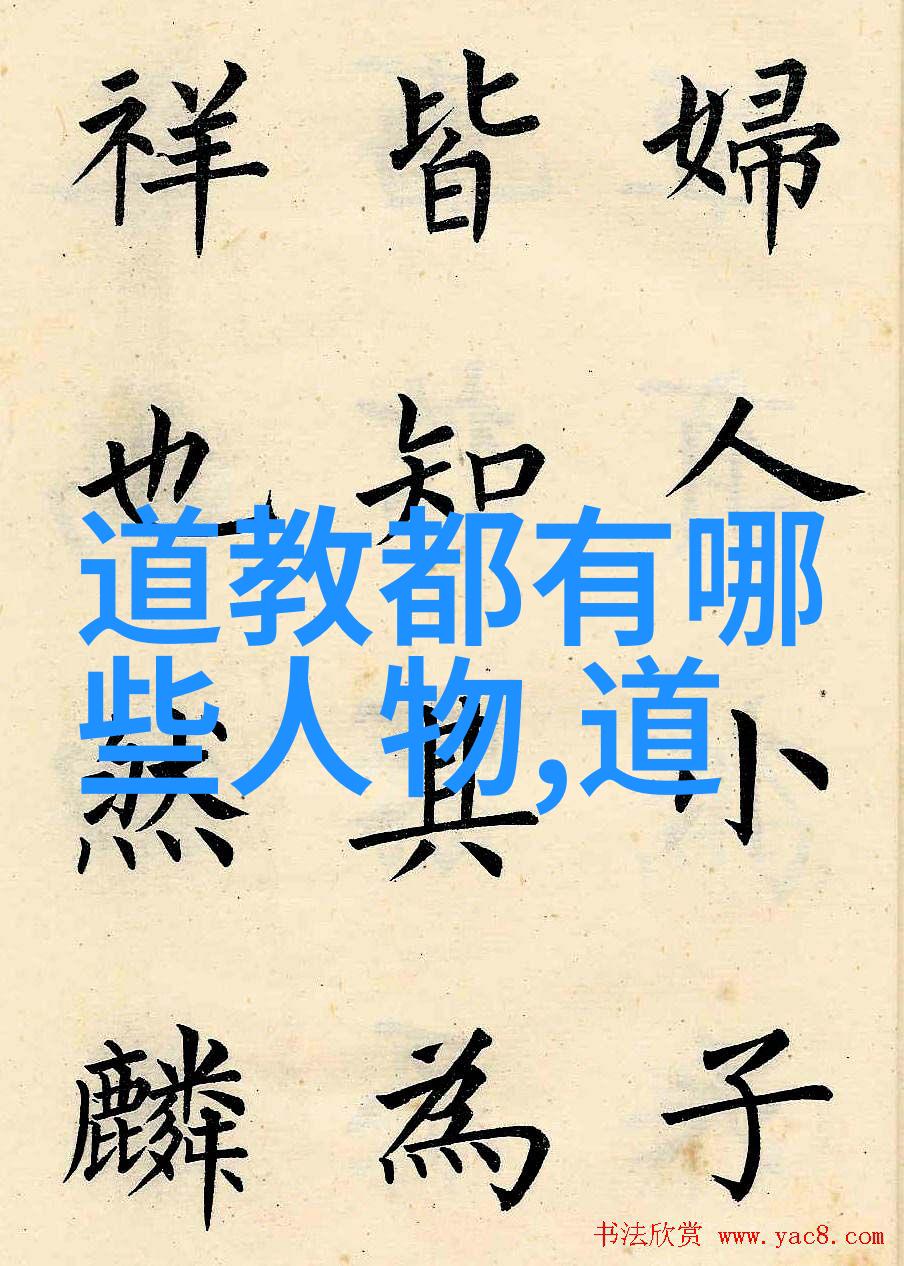 婦人小子
皆知其為
祥也然麟
道教都有哪
些人物,道
书法欣赏 www.yac8.com